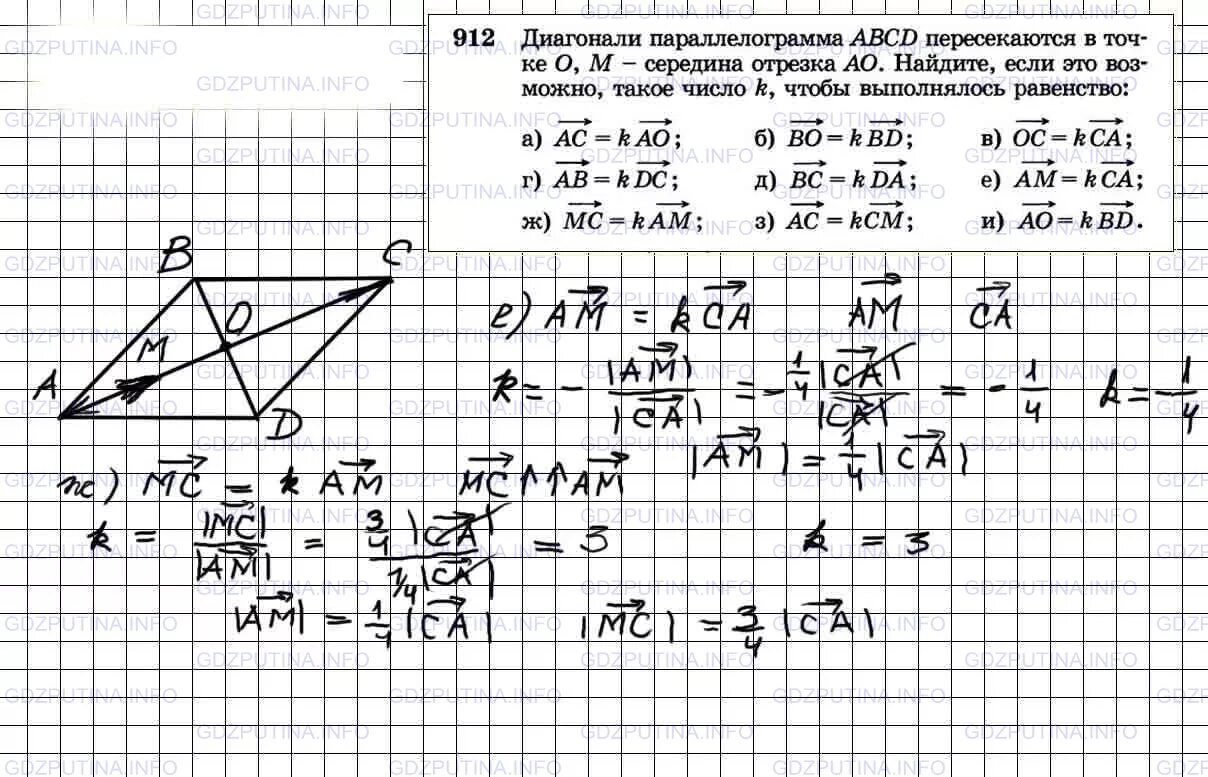 912 Диагонали параллелограмма ABCD пересекаются в точ-
ке O, M – середина отрезка AO. Найдите, если это воз-
можно, такое число k, чтобы выполнялось равенство:
а) AC = k AO; б) BO = k BD; в) OC = k CA;
г) AB = k DC; д) BC = k DA; е) AM = k CA;
ж) MC = k AM; з) AC = kCM; и) AO = k BD.
B C
O
M
A
D
е) AM = k CA AM CA
k = - |AM| / |CA| = - 1/4 |CA| / |CA| = - 1/4 k = - 1/4
|AM| = 1/4 |CA|
ж) MC = k AM MC ↑↑ AM
k = |MC| / |AM| = 3/4 |CA| / 1/4 |CA| = 3 k = 3
|AM| = 1/4 |CA| |MC| = 3/4 |CA|
GDZPUTINA.INFO